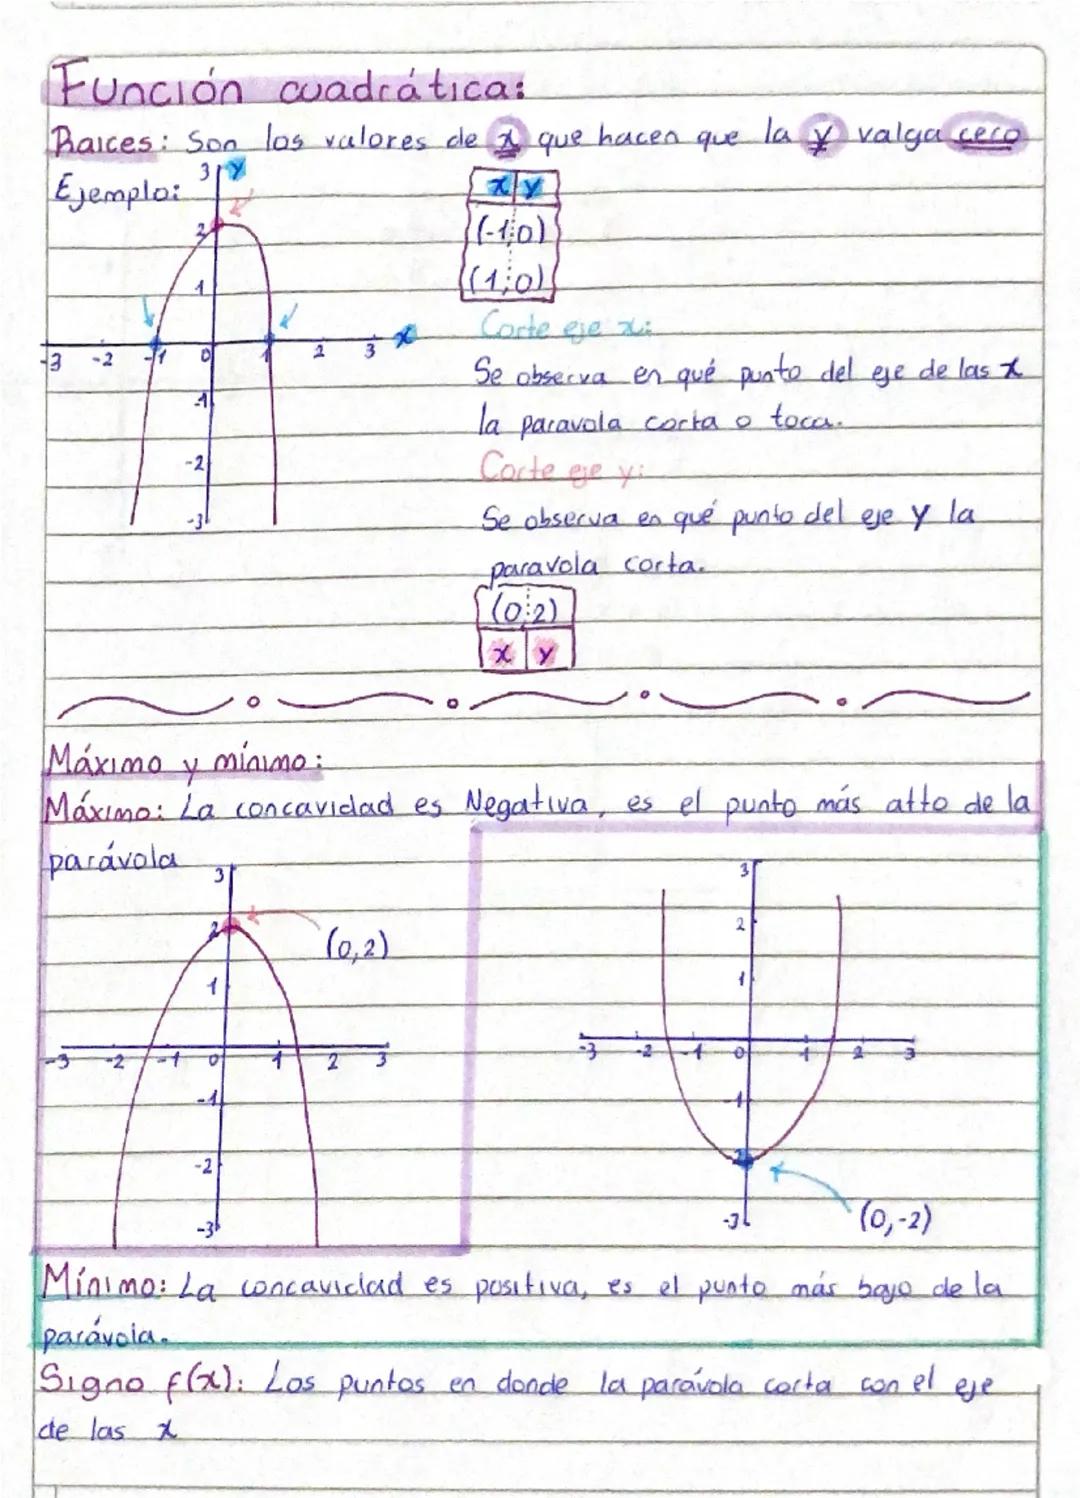 Función cuadrática:
Raices: Son los valores de x que hacen que la y valga cero
Ejemplo:
3 y
2
1
-3 -2 -1 0 1 2 3 x
-1
-2
-3
x y
(-1;0)
(1;0)
Corte eje x:
Se observa en qué punto del eje de las x
la paravola corta o toca.
Corte eje y:
Se observa en qué punto del eje y la
paravola corta.
(0;2)
x y
Máximo y mínimo:
Máximo: La concavidad es Negativa, es el punto más alto de la
parávola
3
2
(0,2)
1
-3 -2 -1 0 1 2 3
-1
-2
-3
3
2
1
-3 -2 -1 0 1 2 3
-1
-3
(0,-2)
Mínimo: La concavidad es positiva, es el punto más bajo de la
parávola.
Signo f(x): Los puntos en donde la parávola corta con el eje
de las x